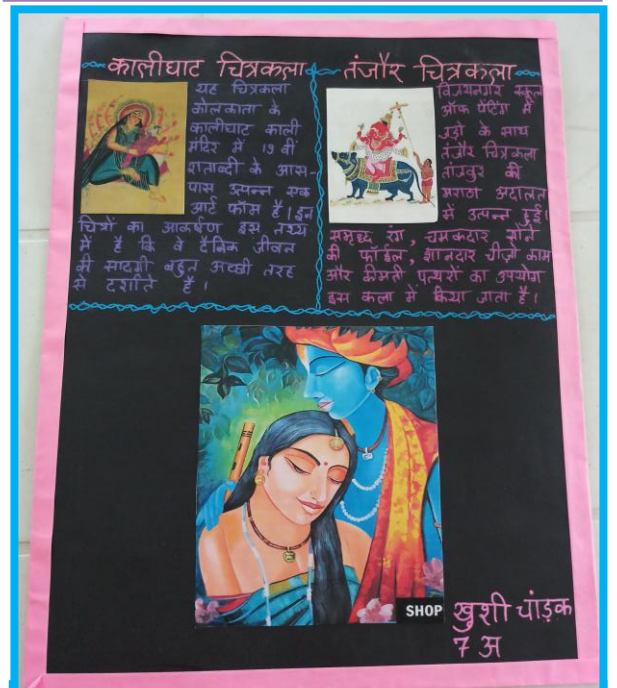 कालीघाट चित्रकला
यह चित्रकला
कोलकाता के
कालीघाट काली
मंदिर में 19 वीं
शताब्दी के आस-
पास उत्पन्न एक
आर्ट फॉर्म है। इन
चित्रों का आकर्षण इस तथ्य
में है कि वे दैनिक जीवन
की सादगी बहुत अच्छी तरह
से दर्शाते है।
तंजौर चित्रकला
विजयनगर स्कूल
ऑफ पेंटिंग में
जड़ों के साथ
तंजौर चित्रकला
की
मराठा अदालत
में उत्पन्न हुई।
समृध्ध रंग, चमकदार सोने
की फॉईल, शानदार चीज़ो काम
और कीमती पत्थरों का उपयोग
इस कला में किया जाता है।
SHOP
खुशी चांड़क
7 अ